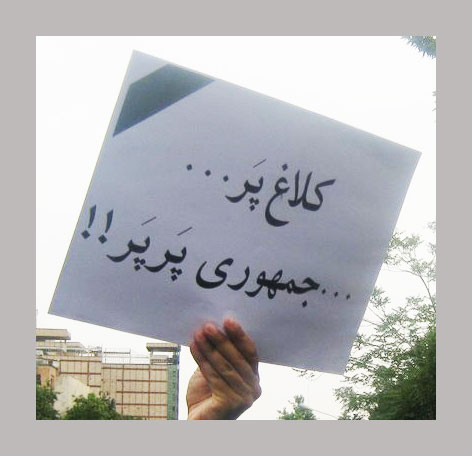 کلاغ پَر...
...جمهوری پَرپَر!!